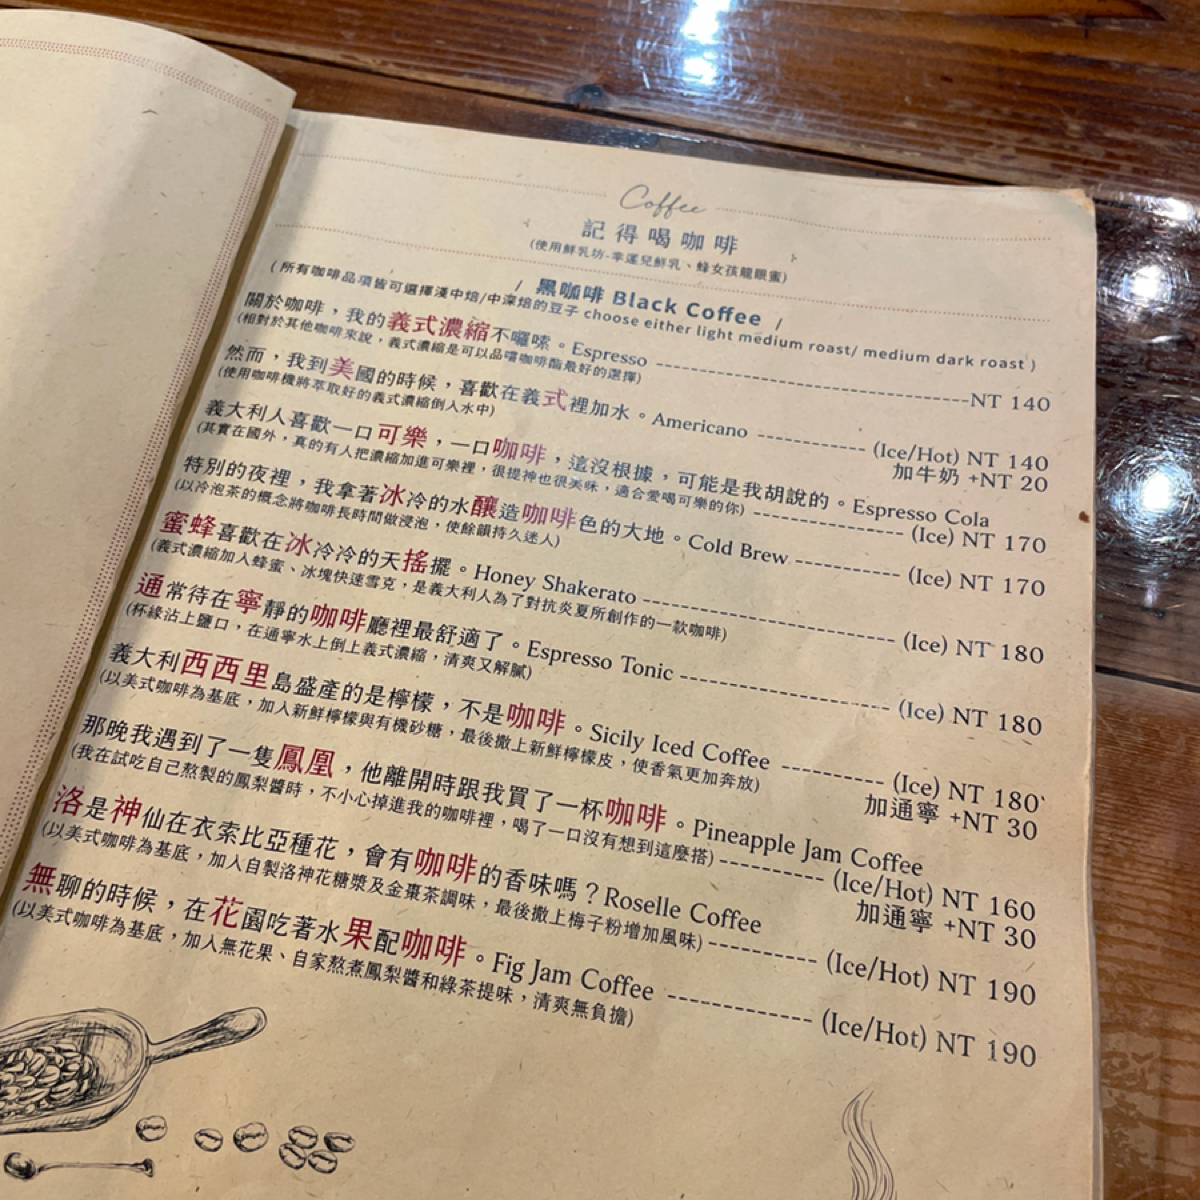 Coffee
記得喝咖啡
(使用鮮乳坊-幸運兒鮮乳、蜂女孩龍眼蜜)
/ 黑咖啡 Black Coffee /
(所有咖啡品項皆可選擇淺中焙/中深焙的豆子 choose either light medium roast/ medium dark roast)
關於咖啡，我的義式濃縮不囉嗦。Espresso ------ NT 140
(相對於其他咖啡來說，義式濃縮是可以品嚐咖啡酯最好的選擇)
然而，我到美國的時候，喜歡在義式裡加水。Americano ------ (Ice/Hot) NT 140
(使用咖啡機將萃取好的義式濃縮倒入水中)
加牛奶 +NT 20
義大利人喜歡一口可樂，一口咖啡，這沒根據，可能是我胡說的。Espresso Cola
(其實在國外，真的有人把濃縮加進可樂裡，很提神也很美味，適合愛喝可樂的你) ------ (Ice) NT 170
特別的夜裡，我拿著冰冷的水釀造咖啡色的大地。Cold Brew ------ (Ice) NT 170
(以冷泡茶的概念將咖啡長時間做浸泡，使餘韻持久迷人)
蜜蜂喜歡在冰冷冷的天搖擺。Honey Shakerato ------ (Ice) NT 180
(義式濃縮加入蜂蜜、冰塊快速雪克，是義大利人為了對抗炎夏所創作的一款咖啡)
通常待在寧靜的咖啡廳裡最舒適了。Espresso Tonic ------ (Ice) NT 180
(杯緣沾上鹽口，在通寧水上倒上義式濃縮，清爽又解膩)
義大利西西里島盛產的是檸檬，不是咖啡。Sicily Iced Coffee ------ (Ice) NT 180
(以美式咖啡為基底，加入新鮮檸檬與有機砂糖，最後撒上新鮮檸檬皮，使香氣更加奔放)
加通寧 +NT 30
那晚我遇到了一隻鳳凰，他離開時跟我買了一杯咖啡。Pineapple Jam Coffee
(我在試吃自己熬製的鳳梨醬時，不小心掉進我的咖啡裡，喝了一口沒有想到這麼搭) ------ (Ice/Hot) NT 160
加通寧 +NT 30
洛是神仙在衣索比亞種花，會有咖啡的香味嗎？Roselle Coffee
(以美式咖啡為基底，加入自製洛神花糖漿及金棗茶調味，最後撒上梅子粉增加風味) ------ (Ice/Hot) NT 190
無聊的時候，在花園吃著水果配咖啡。Fig Jam Coffee ------ (Ice/Hot) NT 190
(以美式咖啡為基底，加入無花果、自家熬煮鳳梨醬和綠茶提味，清爽無負擔)